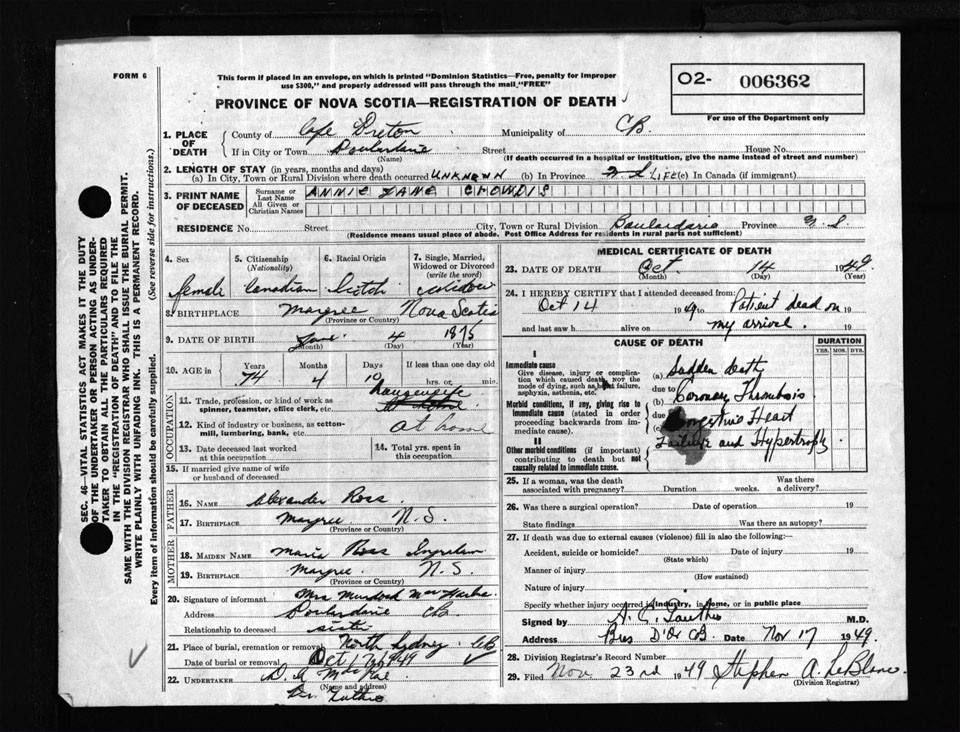 FORM 6
This form if placed in an envelope, on which is printed "Dominion Statistics—Free, penalty for improper
use $300," and properly addressed will pass through the mail "FREE"
PROVINCE OF NOVA SCOTIA—REGISTRATION OF DEATH
O2- 006362
For use of the Department only
1. PLACE OF DEATH
County of Cape Breton Municipality of CB.
If in City or Town Boulardarie Street House No.
(Name) (If death occurred in a hospital or institution, give the name instead of street and number)
2. LENGTH OF STAY (in years, months and days)
(a) In City, Town or Rural Division where death occurred UNKNOWN (b) In Province N S LIFE (c) In Canada (if immigrant)
3. PRINT NAME OF DECEASED
Surname or Last Name
All Given or Christian Names
ANNIE JANE CHOWDIS
RESIDENCE No. Street City, Town or Rural Division Boulardarie Province N S
(Residence means usual place of abode. Post Office Address for residents in rural parts not sufficient)
4. Sex
female
5. Citizenship (Nationality)
Canadian
6. Racial Origin
Scotch
7. Single, Married, Widowed or Divorced (write the word)
Widow
8. BIRTHPLACE Margree Nova Scotia
(Province or Country)
9. DATE OF BIRTH June 4 1875
(Month) (Day) (Year)
10. AGE in Years Months Days If less than one day old
74 4 10 hrs. or min.
OCCUPATION
11. Trade, profession, or kind of work as spinner, teamster, office clerk, etc. housewife
12. Kind of industry or business, as cotton-mill, lumbering, bank, etc. at home
13. Date deceased last worked at this occupation
14. Total yrs. spent in this occupation
15. If married give name of wife or husband of deceased
FATHER
16. NAME Alexander Ross
17. BIRTHPLACE Margree N.S.
(Province or Country)
MOTHER
18. MAIDEN NAME Maria Ross Ingraham
19. BIRTHPLACE Margree N.S.
(Province or Country)
20. Signature of informant Mrs Murdock
Address Boulardarie CB
Relationship to deceased sister
21. Place of burial, cremation or removal North Sydney CB
Date of burial or removal Oct 17 1949
22. UNDERTAKER D. A MacRae
(Name and address)
MEDICAL CERTIFICATE OF DEATH
23. DATE OF DEATH Oct. 14 1949.
(Month) (Day) (Year)
24. I HEREBY CERTIFY that I attended deceased from:
Oct 14 1949 to Patient dead on
and last saw h alive on my arrival. 19
CAUSE OF DEATH
DURATION
YRS. MOS. DYS.
I
Immediate cause
Give disease, injury or complication which caused death, NOT the mode of dying, such as heart failure, asphyxia, asthenia, etc.
(a) Sudden death
due to
(b) Coronary Thrombosis
Morbid conditions, if any, giving rise to immediate cause (stated in order proceeding backwards from immediate cause).
due
Congestive Heart
II
Other morbid conditions (if important) contributing to death but not causally related to immediate cause.
Failure and Hypertrophy
25. If a woman, was the death associated with pregnancy? Duration weeks. Was there a delivery?
26. Was there a surgical operation? Date of operation 19
State findings Was there an autopsy?
27. If death was due to external causes (violence) fill in also the following:
Accident, suicide or homicide? Date of injury 19
(State which)
Manner of injury
(How sustained)
Nature of injury
Specify whether injury occurred in industry, in home, or in public place
Signed by M.D.
Address Bras D'Or CB Date Nov 17 1949.
28. Division Registrar's Record Number
29. Filed Nov. 23rd 1949 Stephen A. LeBlanc
(Division Registrar)
SEC. 46—VITAL STATISTICS ACT MAKES IT THE DUTY
OF THE UNDERTAKER OR PERSON ACTING AS UNDER-
TAKER TO OBTAIN ALL THE PARTICULARS REQUIRED
IN THE "REGISTRATION OF DEATH" AND TO FILE THE
SAME WITH THE DIVISION REGISTRAR WHO SHALL ISSUE THE BURIAL PERMIT.
WRITE PLAINLY WITH UNFADING INK. THIS IS A PERMANENT RECORD.
Every item of information should be carefully supplied. (See reverse side for instructions.)